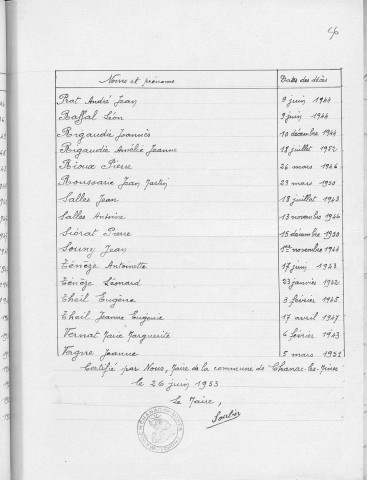 Noms et prénoms Dates des décès
Prat André Jean 9 juin 1944
Raffal Léon 9 juin 1944
Rigaudie Joannès 10 décembre 1944
Rigaudie Amélie Jeanne 18 juillet 1952
Rioux Pierre 24 mars 1946
Roussarie Jean Martin 23 mars 1950
Salles Jean 18 juillet 1943
Salles Antoine 13 novembre 1944
Siorat Pierre 15 décembre 1950
Souny Jean 1er novembre 1944
Ténèze Antoinette 17 juin 1943
Ténèze Léonard 23 janvier 1942
Theil Eugène 3 février 1945
Theil Jeanne Eugénie 17 avril 1947
Vernat Marie Marguerite 6 février 1943
Vergne Jeanne 5 mars 1951
Certifié par Nous, Maire de la commune de Chanac-les-Mines
le 26 juin 1953
Le Maire,